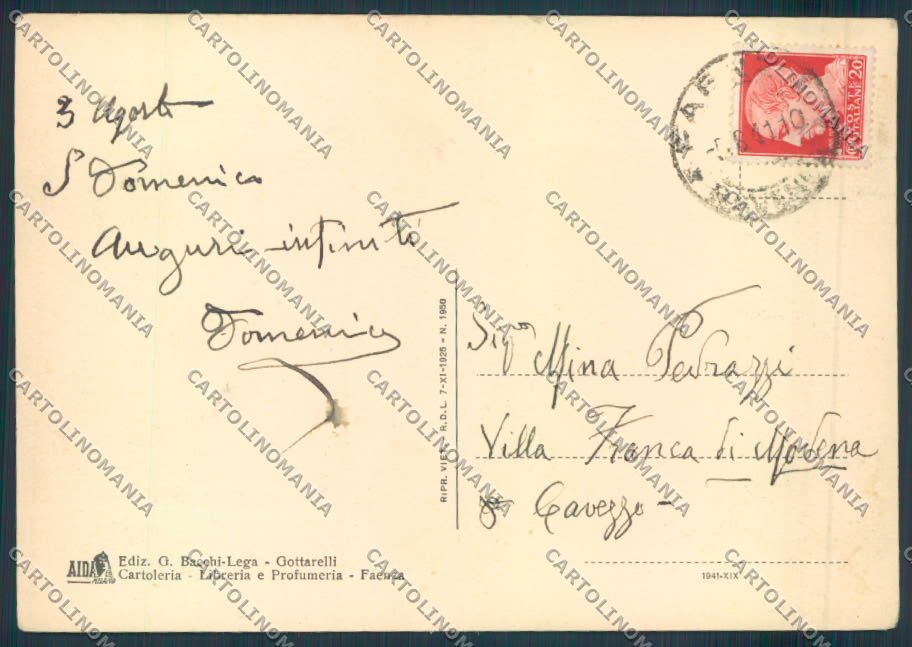 3 Agosto
S Domenico
Auguri infiniti
Domenico
Sigra Mina Pedrazzi
Villa Franca di Modena
Cavezzo -
RIPR. VIET. R.D.L. 7-XI-1925 - N. 1950
POSTE ITALIANE
20
AIDA
MILANO
Ediz. G. Bacchi-Lega - Gottarelli
Cartoleria - Libreria e Profumeria - Faenza
1941-XIX
CARTOLINOMANIA